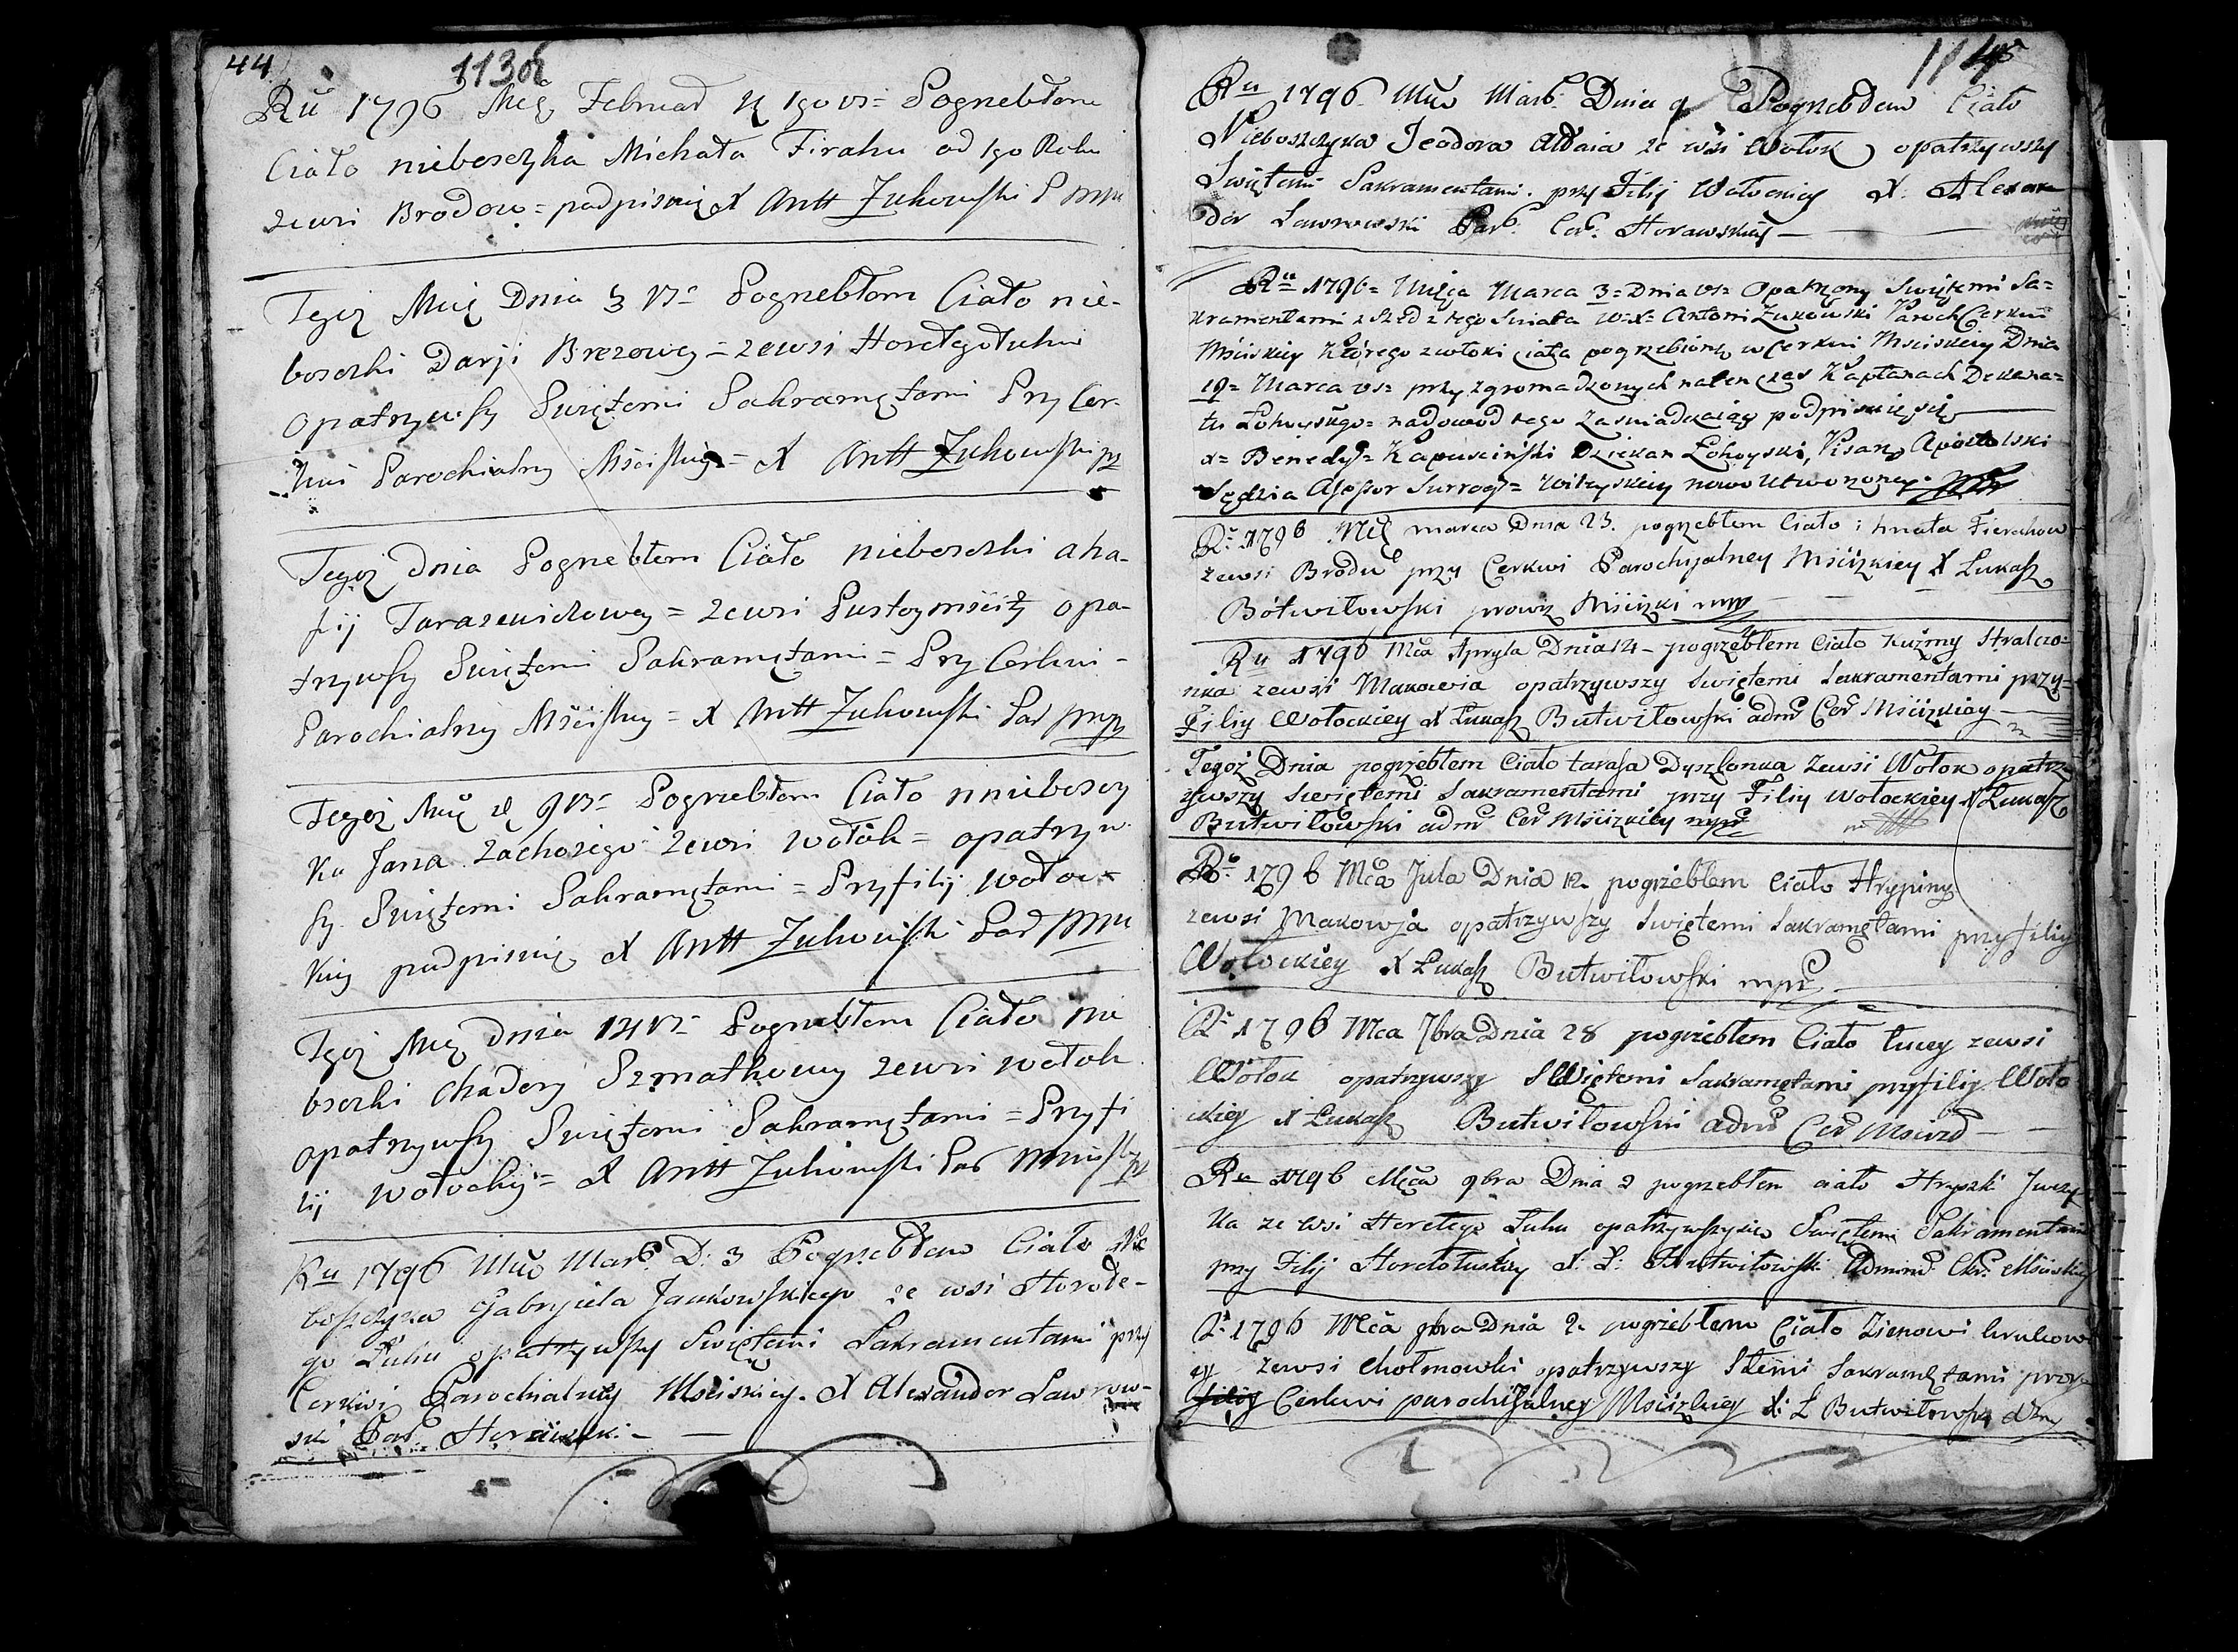 44
113
Ru 1796 Mcą Februar 1go vs = Pogrzebłem
Ciało niebosczka Michała Firahu od 1go Roku
zewsi Brodow = podpisuię X Antt Żukowski P mpu
Tegoż Mcą Dnia 3 vs = Pogrzebłem Ciało nie-
bosczki Darji Brezowey = zewsi Horełegołuhu
opatrzywszy Swiętemi Sakramętami Przy Cer-
kwi Parochialny Mścisski = X Antt Żukowski
Tegoż Dnia Pogrzebłem Ciało nieboszki Aha-
fij Tarasewiczowey = zewsi Pustoymściż opa-
trzywszy Swiętemi Sakramętami = Przy Cerkwi -
Parochialny Mścisski = X Antt Żukowski Par mpp
Tegoż Mcą 9 vs = Pogrzebłem Ciało nnieboscz
ka Jana Zachożego zewsi Wołok = opatrzyw
szy Swiętemi Sakramętami = Przy filij Wołoc-
kiy podpisuię X Antt Żukowski Par mpu
Tgoż Mcą Dnia 14 vs = Pogrzebłem Ciało nie
bsczki Chadory Szmatkowny zewsi Wołok
opatrzywszy Swiętemi Sakramętami = Przy fi
lij Wołocky = X Antt Żukowski Par
Ru 1796 Mca Mar. D: 3 Pogrzebłem Ciało Nie
boszczyka Gabryiela Jankowskiego ze wsi Horołe-
go Łuhu opatrzywszy Swiętemi Sakramentami przy
Cerkwi Parochialney Msciskiey. X Alexander Lawrow-
ski Par.
114
Ru 1796 Mca Mar. Dnia 9 Pogrzebłem Ciało
Nieboszczyka Teodora ze wsi Wołok opatrzywszy
Swiętemi Sakramentami. przy Filij Wołockiey X. Alexan
der Lawrowski Par. Cer. Horawskiey -
Ru 1796 = Msca Marca 3 = Dnia vs = Opatrzony Swiętemi Sa=
kramentami zszed z tego Swiata W=X= Antoni Żukowski Paroch Cerkwi
Mściskiey Którego zwłoki ciała pogrzebiono w Cerkwi Msciskiey Dnia
19 = Marca vs = przy zgromadzonych naten czas Kapłanach Dekana=
tu Łohoyskiego = nadowod tego zaswiadczaiąc podpisuię się
X = Benedyk = Kapusciński Dziekan Łohoyski, Pisarz Apostolski
Sędzia Assessor Surrog = nowo utworzoney.
R. 1796 Mcą marca Dnia 23. pogrzebłem Ciało Ihnata Fierahow
zewsi Brodu przy Cerkwi Parochyalney Mściżkiey X Łukasz
Bótwiłowski prowiz Mściżki mpp
Ru 1796 Mca Apryla Dnia 14 - pogrzebłem Ciało Kuźmy Stralczo=
nka zewsi Makawia opatrzywszy Swiętemi Sakramentami przy=
Filiy Wołockiey X Łukasz Butwiłowski admr Cer Mściżkiey
Tegoż Dnia pogrzebłem Ciało tarasa Dyszlonka zewsi Wołok opatrz
ywszy Swiętemi Sakramentami przy Filiy Wołockiey X Łukasz
Butwiłowski admr Cer Mściżkiey mpp
R. 1796 Mca Jula Dnia 12. pogrzebłem Ciało Hrypiny
zewsi Makowja opatrzywszy Swiętemi Sakramętami przy filiy
Wołockiey X Łukasz Butwiłowski mpp
R. 1796 Mca 7bra Dnia 28 pogrzebłem Ciało Łucey zewsi
Wołok opatrzywszy Swiętemi Sakramętami przyfiliy Woło
ckiey X Łukasz Butwiłowski admr Cer
Ru 1796 Msca 9bra Dnia 2 pogrzebłem ciało Hryszki
ka ze wsi Horełego Łuhu opatrzywszy Swiętemi Sakramentami
przy Filij Horełołuskiey X: Ł: Butwiłowski Admin: Ckr. Msciskiey
R. 1796 Mca 9bra Dnia 2. pogrzebłem Ciało Zienowi
ey zewsi Chołmowki opatrzywszy Stemi Sakramętami przy
Cerkwi parochijalney Mściżkiey X: Ł Butwiłowski